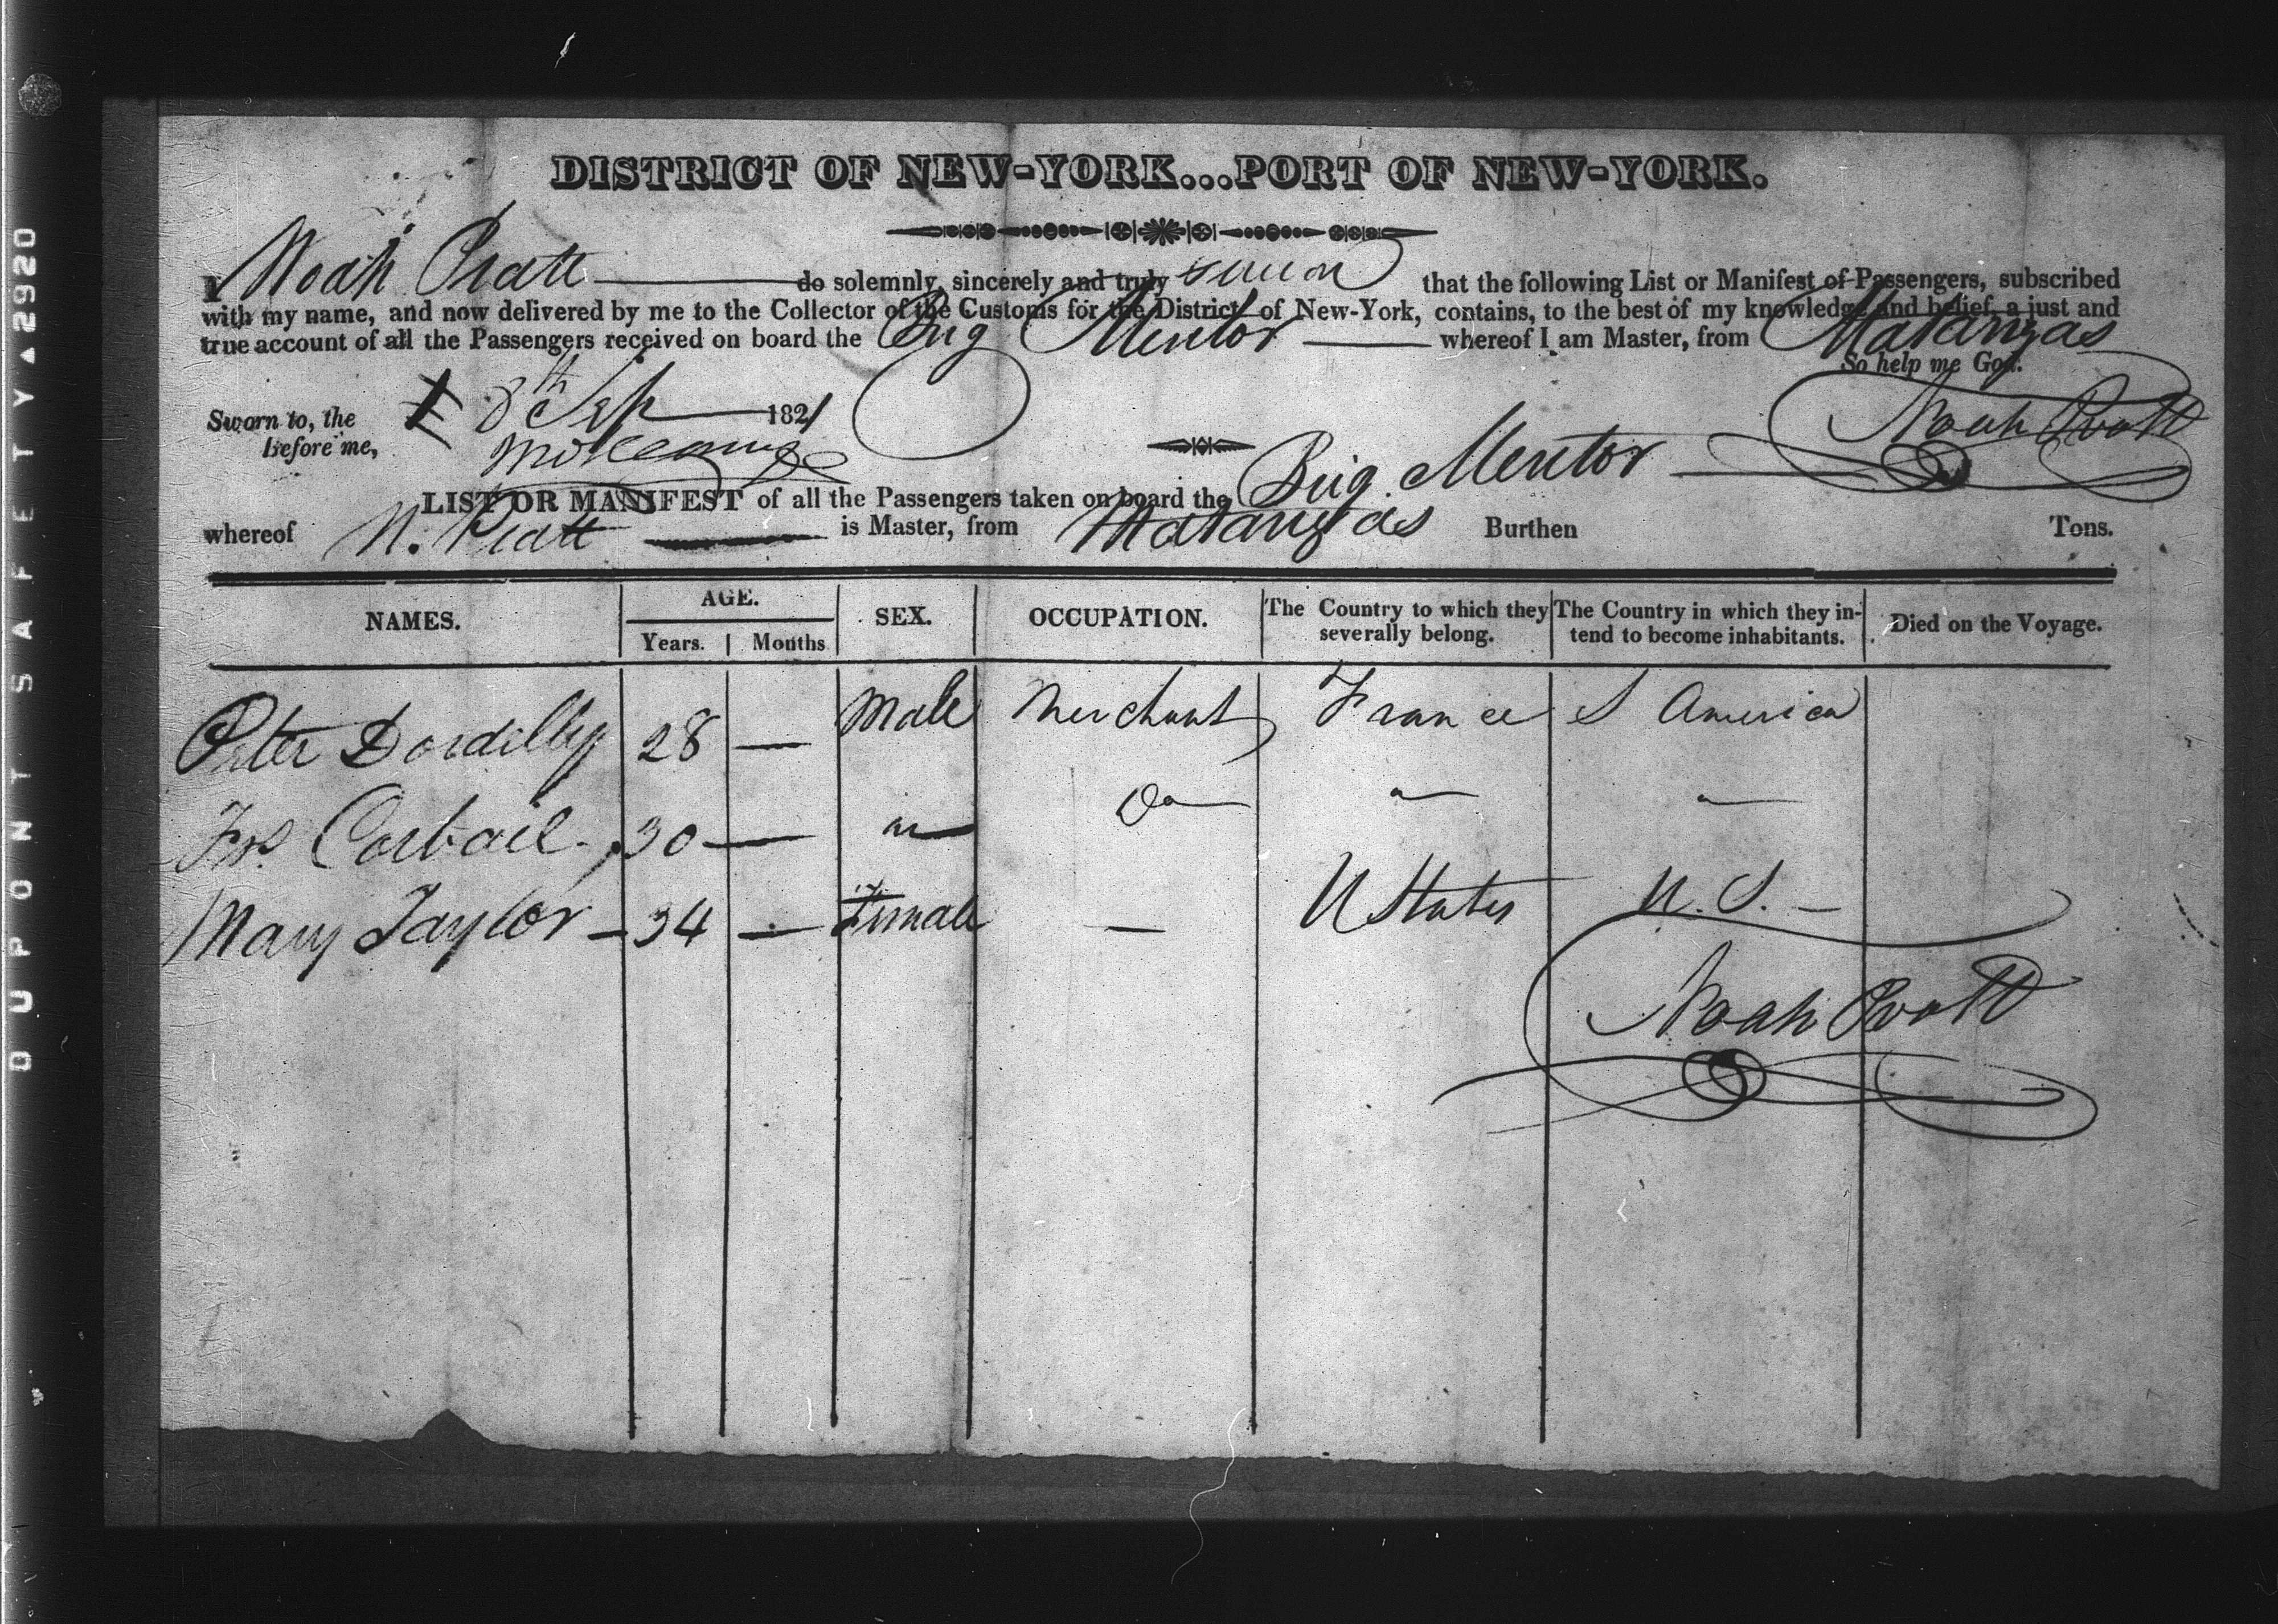 DISTRICT OF NEW-YORK...PORT OF NEW-YORK.
I Noah Pratt do solemnly, sincerely and truly swear that the following List or Manifest of Passengers, subscribed
with my name, and now delivered by me to the Collector of the Customs for the District of New-York, contains, to the best of my knowledge and belief, a just and
true account of all the Passengers received on board the Brig Mentor whereof I am Master, from Matanzas
So help me God.
Sworn to, the 8th Sep 1821
before me,
Noah Pratt
LIST OR MANIFEST of all the Passengers taken on board the Brig Mentor
whereof N. Pratt is Master, from Matanzas Burthen Tons.
NAMES. AGE. SEX. OCCUPATION. The Country to which they severally belong. The Country in which they intend to become inhabitants. Died on the Voyage.
Years. Months
Peter Dordelly 28 — Male Merchant France S America
Corbail 30 — " Do " "
Mary Taylor 34 — Female — U States U.S.
Noah Pratt
DUPONT SAFETY▲2920